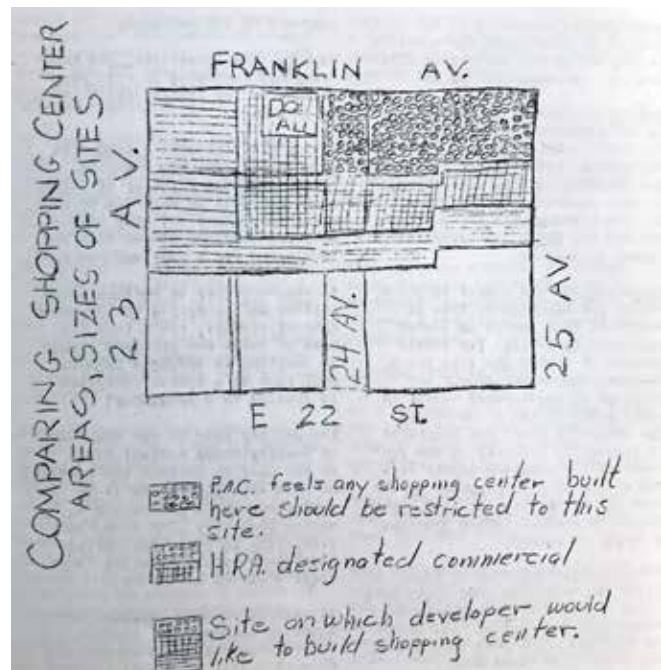 COMPARING SHOPPING CENTER
AREAS, SIZES OF SITES
FRANKLIN AV.
DOLL
ALL
23 AV.
24 AV.
25 AV.
E 22 ST.
P.A.C. feels any shopping center built
here should be restricted to this
site.
H.R.A. designated commercial
Site on which developer would
like to build shopping center.